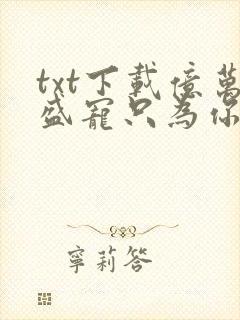 txt下載億萬
盛寵只為你
寧莉答